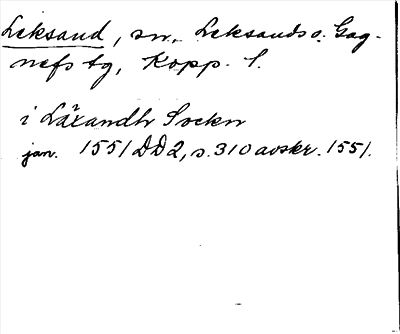 Leksand, sn, Leksands o. Gag-
nefs tg, Kopp. l.
i Läxandh Sockn
jan. 1551 DD2, s. 310 avskr. 1551.